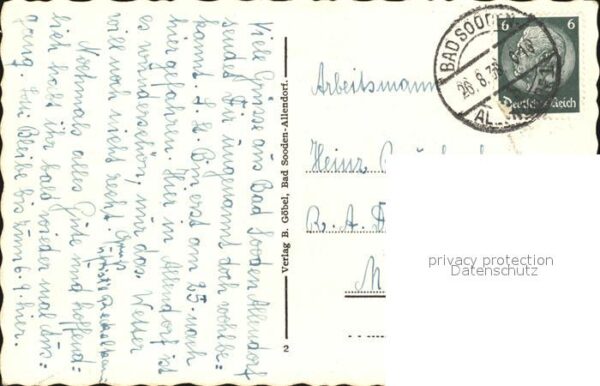 Viele Grüsse aus Bad Sooden Allendorf
sendet Dir ungenannt doch wohlbe=
kannt. Bin erst am 25. nach
hier gefahren. Hier in Allendorf ist
es wunderschön, nur das Wetter
will noch nicht recht.
Nochmals alles Gute und hoffend=
lich hast ihr bald wieder mal Aus=
gang. Bleibe bis zum 6.9. hier.
Gruß
Verlag B. Göbel, Bad Sooden-Allendorf.
2
BAD SOODEN
26.8.3
6 6
Deutsches Reich
Arbeitsmann
Heinz
R. A. D.
M
privacy protection
Datenschutz